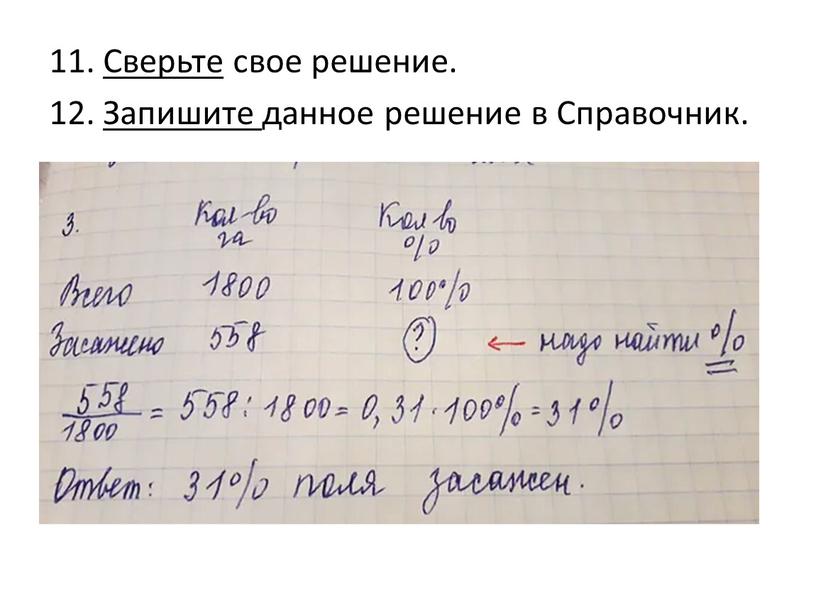 11. Сверьте свое решение.
12. Запишите данное решение в Справочник.
3. Кол-во га Кол во %
Всего 1800 100%
Засажено 558 ? ← надо найти %
558/1800 = 558 : 1800 = 0,31 · 100% = 31%
Ответ: 31% поля засажен.